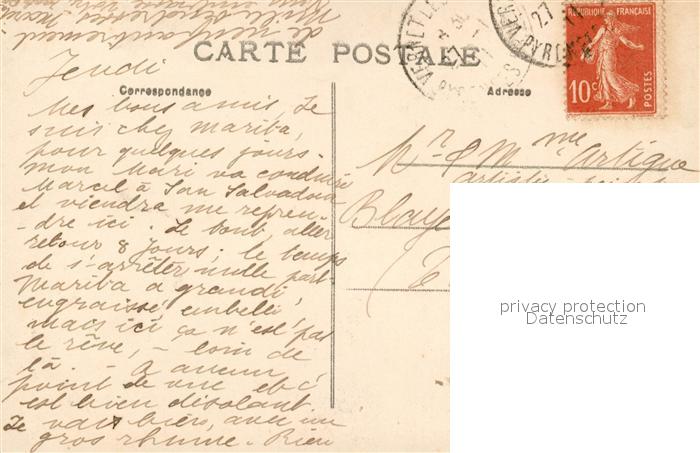 CARTE POSTALE
Correspondance
Adresse
REPUBLIQUE FRANÇAISE
10c
POSTES
Jeudi
Mes bons amis, Je
suis chez Mariba,
pour quelques jours.
mon Mari va conduire
Marcel à San Salvadour
et viendra me repren-
dre ici. Le tout, aller
retour 8 jours; le temps
de s'arrêter nulle part.
Mariba a grandi,
engraissé, embelli,
mais ici ça n'est pas
le rêve, - loin de
là. - A aucun
point de vue et c'
est bien désolant.
Je vais bien, avec un
gros rhume. Rien
Mr & Mme Artigue
Blaye
privacy protection
Datenschutz